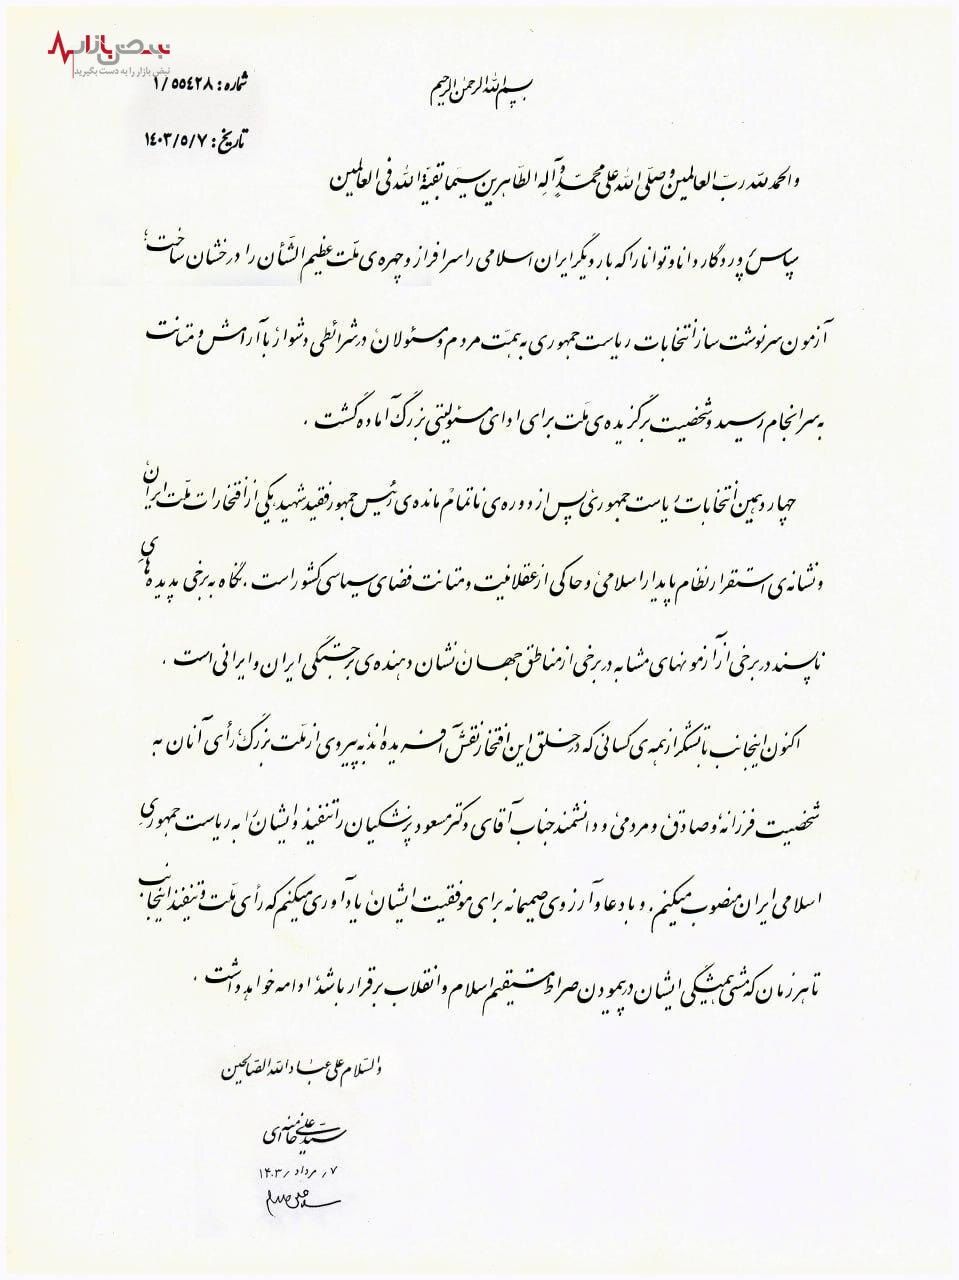 نبض بازار
نبض بازار را به دست بگیرید
شماره: ۱/۵۵٤۲۸
تاریخ: ۱٤۰۳/۵/۷
بسم الله الرحمن الرحیم
والحمد لله رب العالمین و صلّی الله علی محمّد و آله الطّاهرین سیّما بقیّة الله فی العالمین
سپاس پروردگار دانا و توانا را که بار دیگر ایران اسلامی را سرافراز و چهره‌ی ملّت عظیم الشّأن را درخشان ساخت؛
آزمون سرنوشت ساز انتخابات ریاست جمهوری به همّت مردم و مسئولان در شرائطی دشوار با آرامش و متانت
به سرانجام رسید و شخصیت برگزیده‌ی ملّت برای ادای مسئولیتی بزرگ آماده گشت .
چهاردهمین انتخابات ریاست جمهوری پس از دوره‌ی ناتمام مانده‌ی رئیس جمهور فقید شهید، یکی از افتخارات ملّت ایران
و نشانه‌ی استقرار نظام پایدار اسلامی و حاکی از عقلانیت و متانت فضای سیاسی کشور است . نگاه به برخی پدیده‌های
ناپسند در برخی از آزمونهای مشابه در برخی از مناطق جهان نشان دهنده‌ی برجستگی ایران و ایرانی است .
اکنون اینجانب با تشکر از همه‌ی کسانی که در خلق این افتخار نقش آفریده‌اند به پیروی از ملّت بزرگ، رأی آنان به
شخصیت فرزانه و صادق و مردمی و دانشمند جناب آقای دکتر مسعود پزشکیان را تنفیذ و ایشان را به ریاست جمهوریِ
اسلامی ایران منصوب میکنم. و با دعا و آرزوی صمیمانه برای موفقیت ایشان یادآوری میکنم که رأی ملّت و تنفیذ اینجانب
تا هر زمان که مشی همیشگی ایشان در پیمودن صراط مستقیم اسلام و انقلاب برقرار باشد، ادامه خواهد داشت .
والسّلام علی عباد الله الصّالحین
سیّد علی خامنه‌ای
۷ / مرداد / ۱۴۰۳